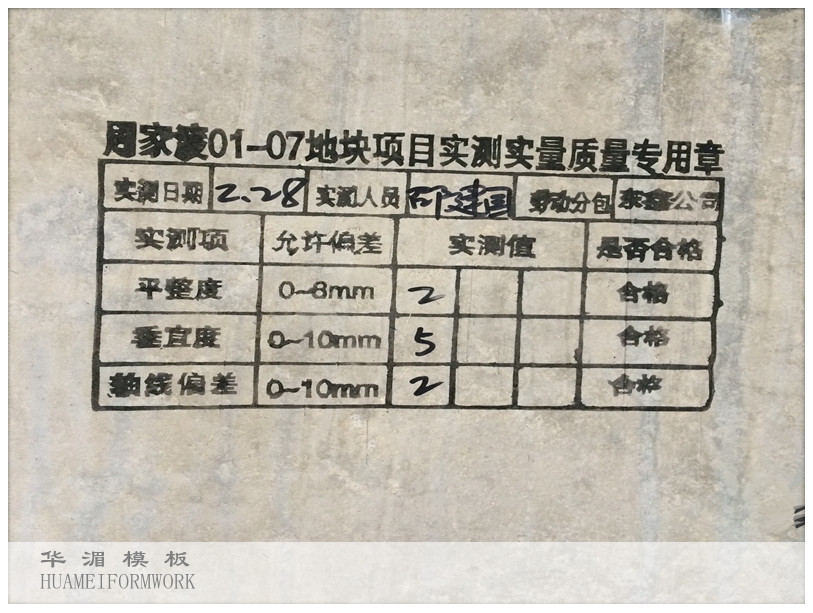 周家渡01-07地块项目实测实量质量专用章
实测日期 2.28 实测人员 邵建国 劳动分包 东鑫公司
实测项 允许偏差 实测值 是否合格
平整度 0~8mm 2 合格
垂直度 0~10mm 5 合格
轴线偏差 0~10mm 2 合格
华湄模板
HUAMEIFORMWORK